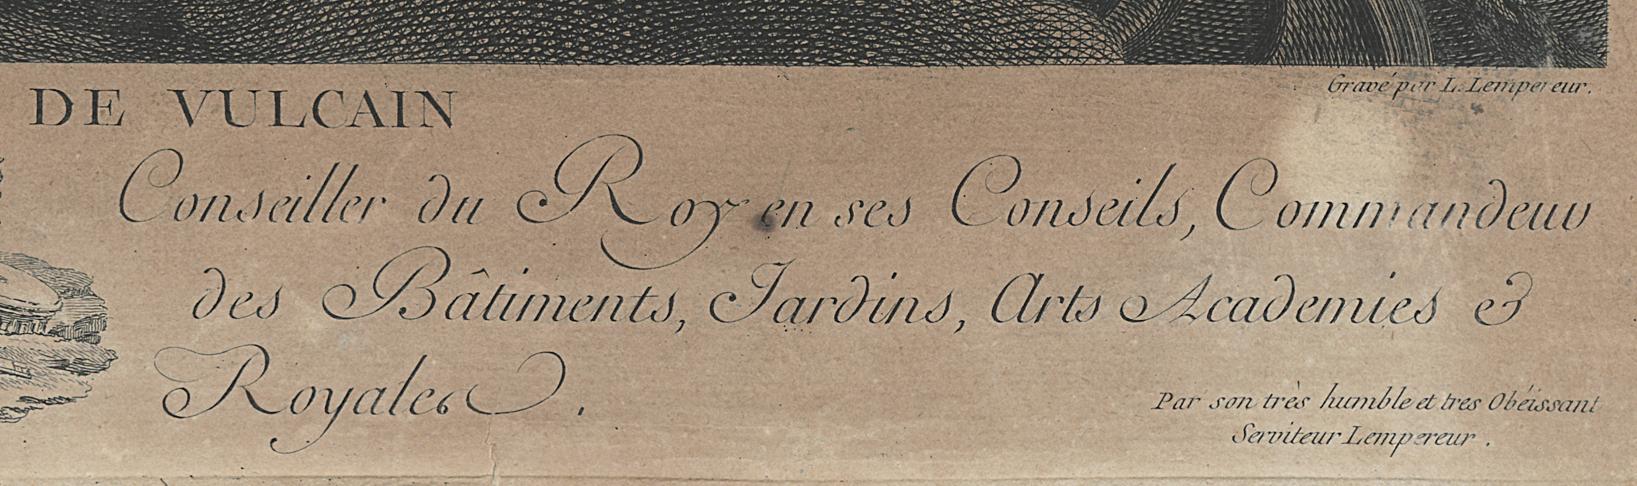 Gravé par L. Lempereur.
DE VULCAIN
Conseiller du Roy en ses Conseils, Commandeur
des Bâtiments, Jardins, Arts Academies &
Royales.
Par son très humble et tres Obéissant
Serviteur Lempereur.